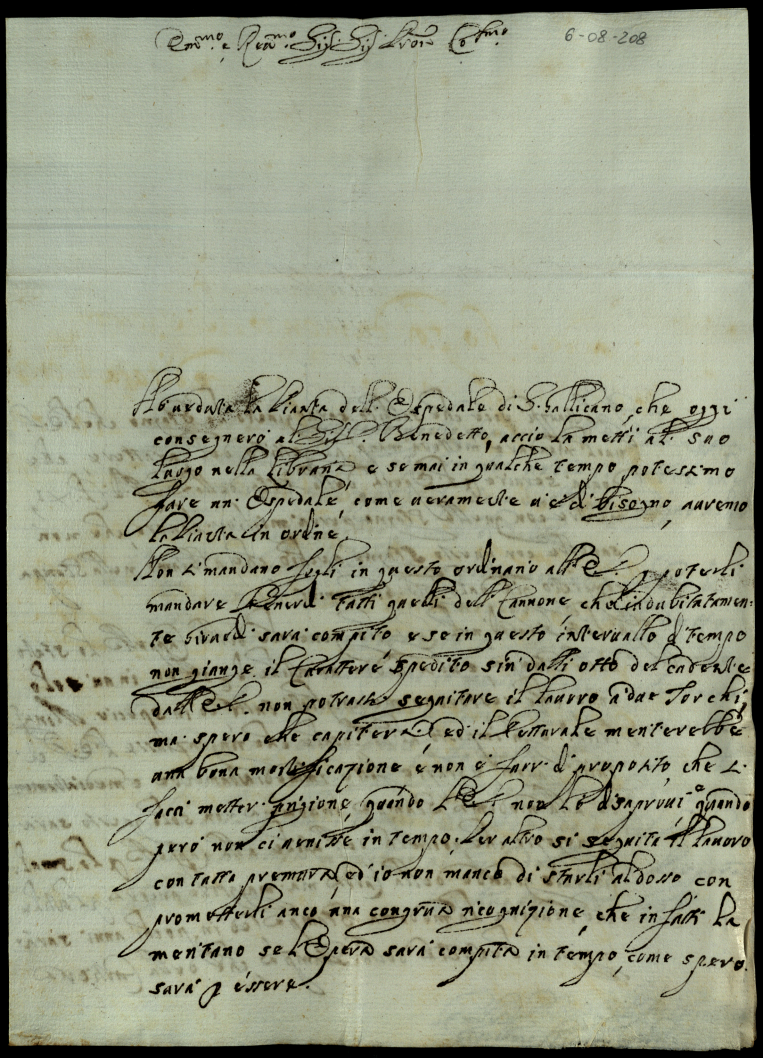 Em.mo e Rev.mo Sig. Sig. Pron Col.mo
6-08-208
Ho veduta la Pianta dell'Ospedale di S. Gallicano, che oggi
consegnerò al Sig. Benedetto, acciò la metti al suo
luogo nella Libraria e se mai in qualche tempo potessimo
fare un'Ospedale, come veramente v'è di bisogno, avremo
la Pianta in ordine,
Non si mandano fogli in questo ordinario all'E. p poterli
mandare Venerdì tutti quelli dell'Cannone che indubitatamen
te Giovedì sarà compito e se in questo intervallo di tempo
non giunge il Carattere spedito sin dalli otto del cadente
dall'E. non potrassi seguitare il lavoro a due Torchi,
ma spero che capiterà ed il Vetturale meriterebbe
una bona mortificazione e non è fuor di proposito che si
facci metter prigione, quando l'E. non lo disaprovi quando
però non ci arrivi in tempo. Per altro si seguita il lavoro
con tutta premura, ed io non manco di starli addosso con
prometterli anco una congrua ricognizione, che in fatti la
meritano se l'Opera sarà compita in tempo, come spero
sarà p essere.